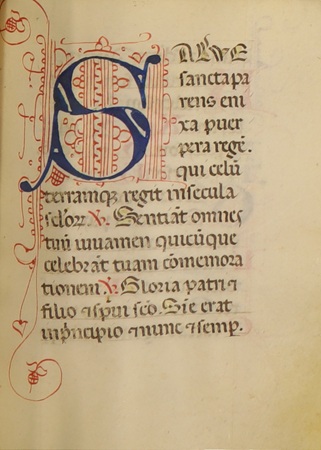 SALVE
sancta pa
rens eni
xa puer
pera regē.
qui celū
terramqꝫ regit in secula
seꝉoꝝ ℣. Sentiāt omnes
tuū iuuamen quicūque
celebrāt tuam cōmemora
tionem ℣. Gloria patri ⁊
filio ⁊ sp̄ui sc̄o. Sic erat
in pͥncipio ⁊ nunc ⁊ semꝑ.